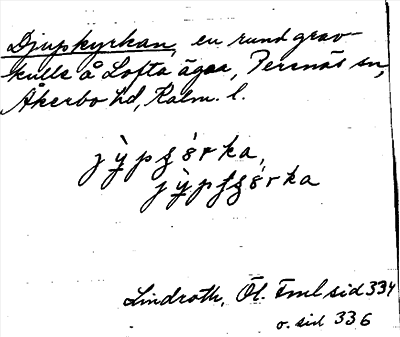 Djupkyrkan, en rund grav-
kulle å Lofta ägor, Persnäs sn,
Åkerbo hd, Kalm. l.
jỳpʂǿrka,
jỳpfʂǿrka
Lindroth, Öl. Fml sid 334
o. sid 336